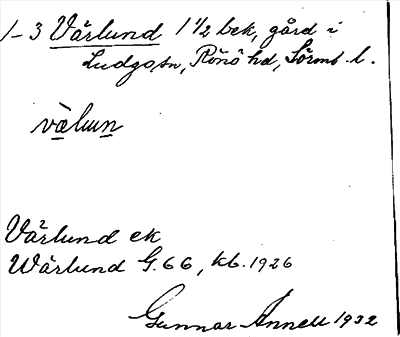 1-3 Vårlund 1 1/2 bek, gård i
Ludgo sn, Rönö hd, Sörml. l.
Vårlund ek
Wårlund G. 66, kb. 1926
Gunnar Annell 1932